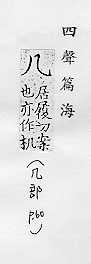 四聲篇海
几
居履切案
也亦作机
(几部 p60)